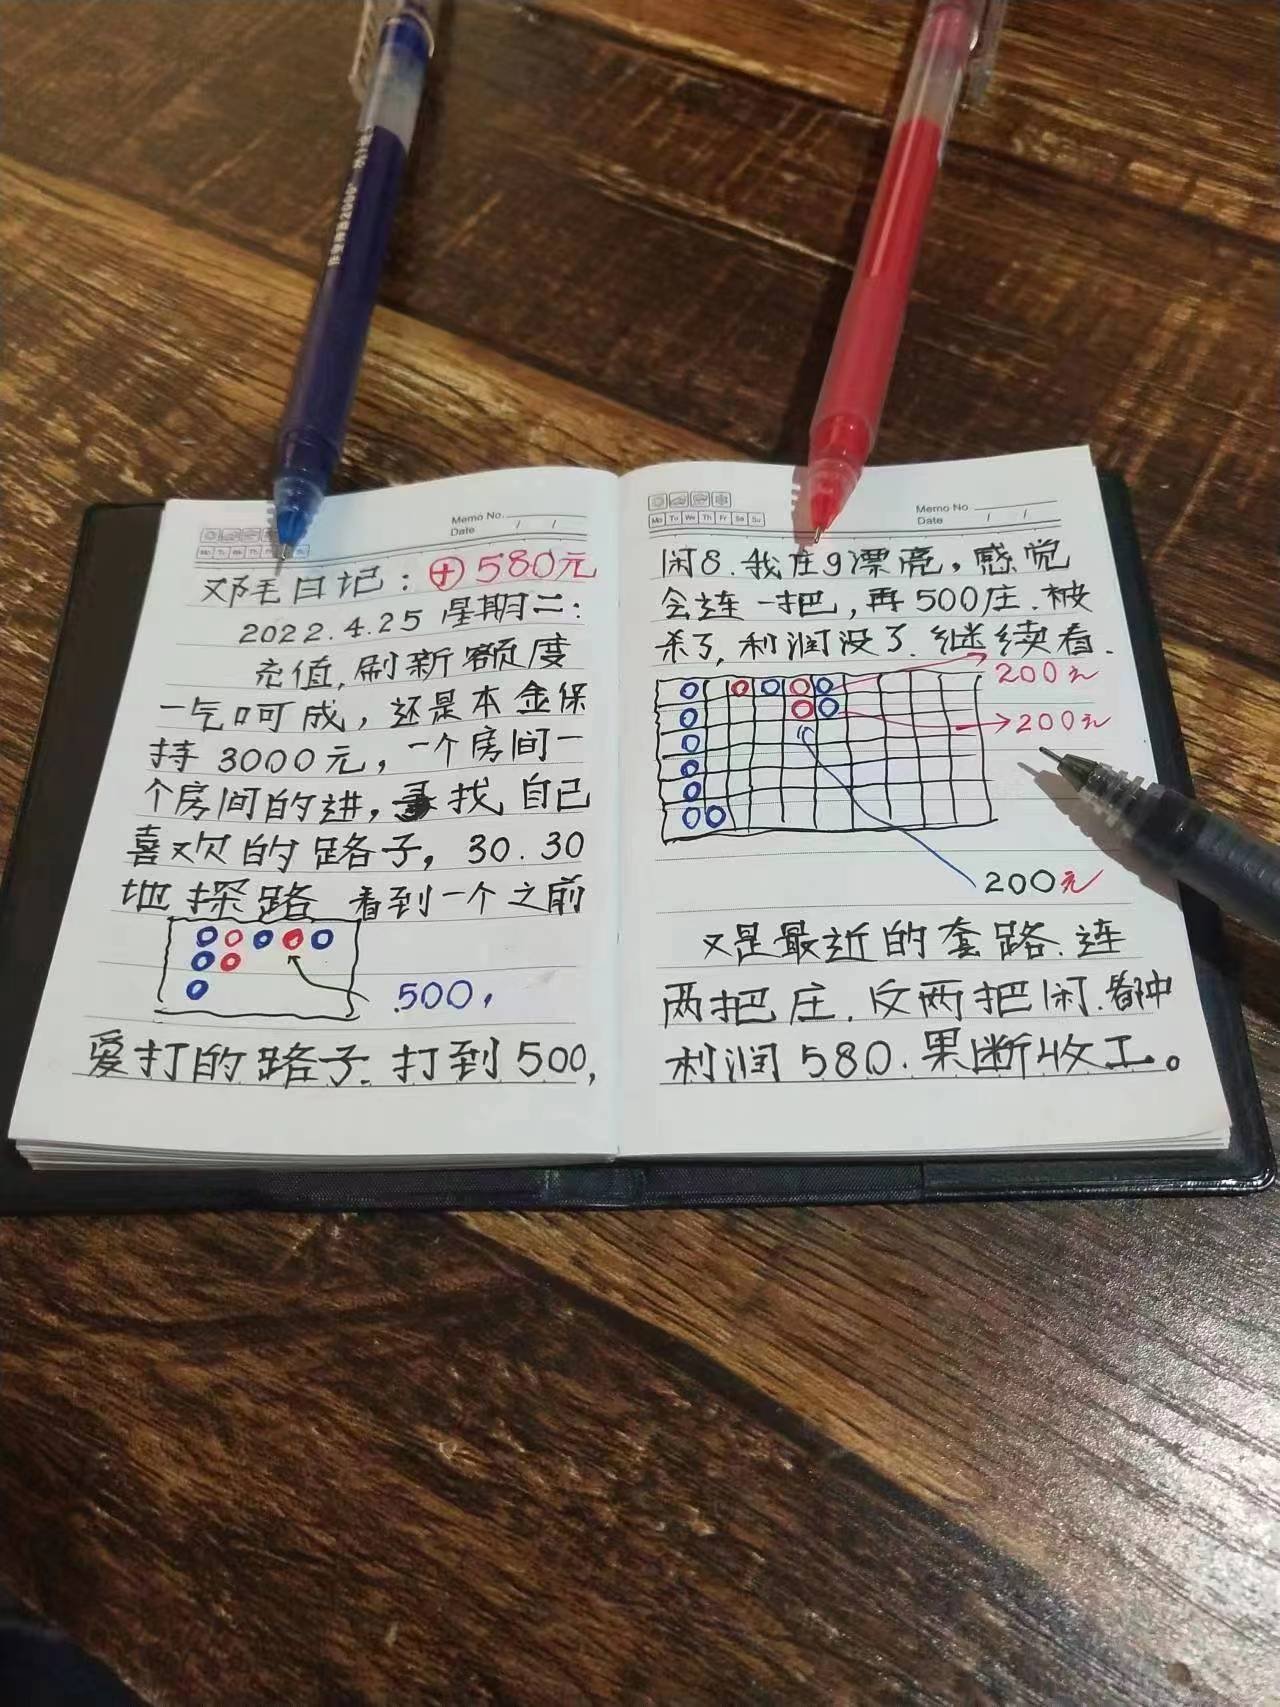 Memo No.
Date / /
Mo Tu We Th Fr Sa Su
邓毛日记：⊕580元
2022.4.25 星期二：
充值，刷新额度
一气呵成，还是本金保
持3000元，一个房间一
个房间的进，寻找自己
喜欢的路子，30.30
地探路 看到一个之前
500，
爱打的路子.打到500，
Memo No.
Date / /
Mo Tu We Th Fr Sa Su
闲8.我庄9漂亮，感觉
会连一把，再500庄.被
杀了，利润没了.继续看.
200元
200元
200元
又是最近的套路.连
两把庄.反两把闲.都中
利润580.果断收工。